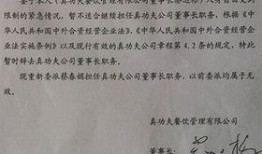 限制的紧急情况。暂不适合继续担任真功夫公司董事长职务,根据《中
华人民共和国中外合资经营企业法》、《中华人民共和国中外合资经营企
业法实施条例》以及现行有效的真功夫公司章程第 4.2 条的规定,特此
暂时辞去真功夫公司董事长职务。
现重新委派蔡春媚担任真功夫公司董事长职务,以前委派均属于无
效。
真功夫餐饮管理有限公司
董事长: